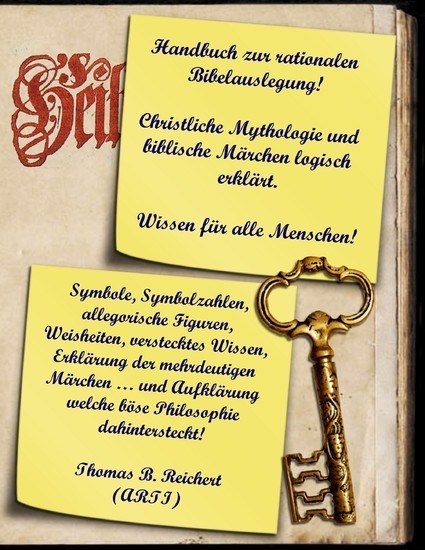 Heil
Handbuch zur rationalen
Bibelauslegung!
Christliche Mythologie und
biblische Märchen logisch
erklärt.
Wissen für alle Menschen!
Symbole, Symbolzahlen,
allegorische Figuren,
Weisheiten, verstecktes Wissen,
Erklärung der mehrdeutigen
Märchen ... und Aufklärung
welche böse Philosophie
dahintersteckt!
Thomas B. Reichert
(ARTI)